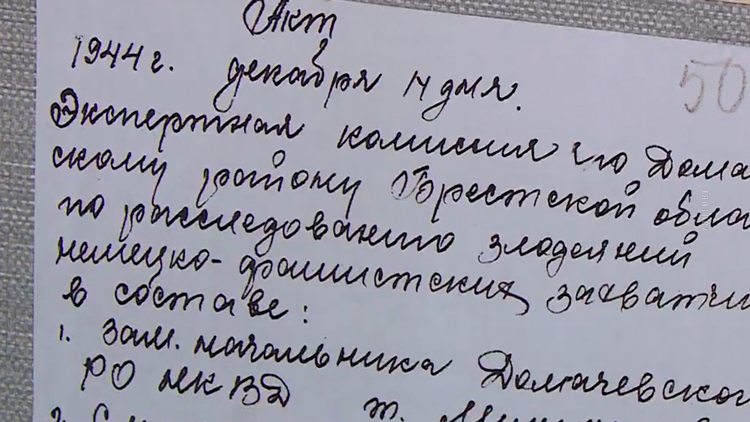 Акт
50
1944 г. декабря 14 дня.
Экспертная комиссия по Дома
скому району Брестской обла
по расследованию злодеяний
немецко-фашистских захватчи
в составе:
1. Зам. начальника Домачевского
РО НКВД т.